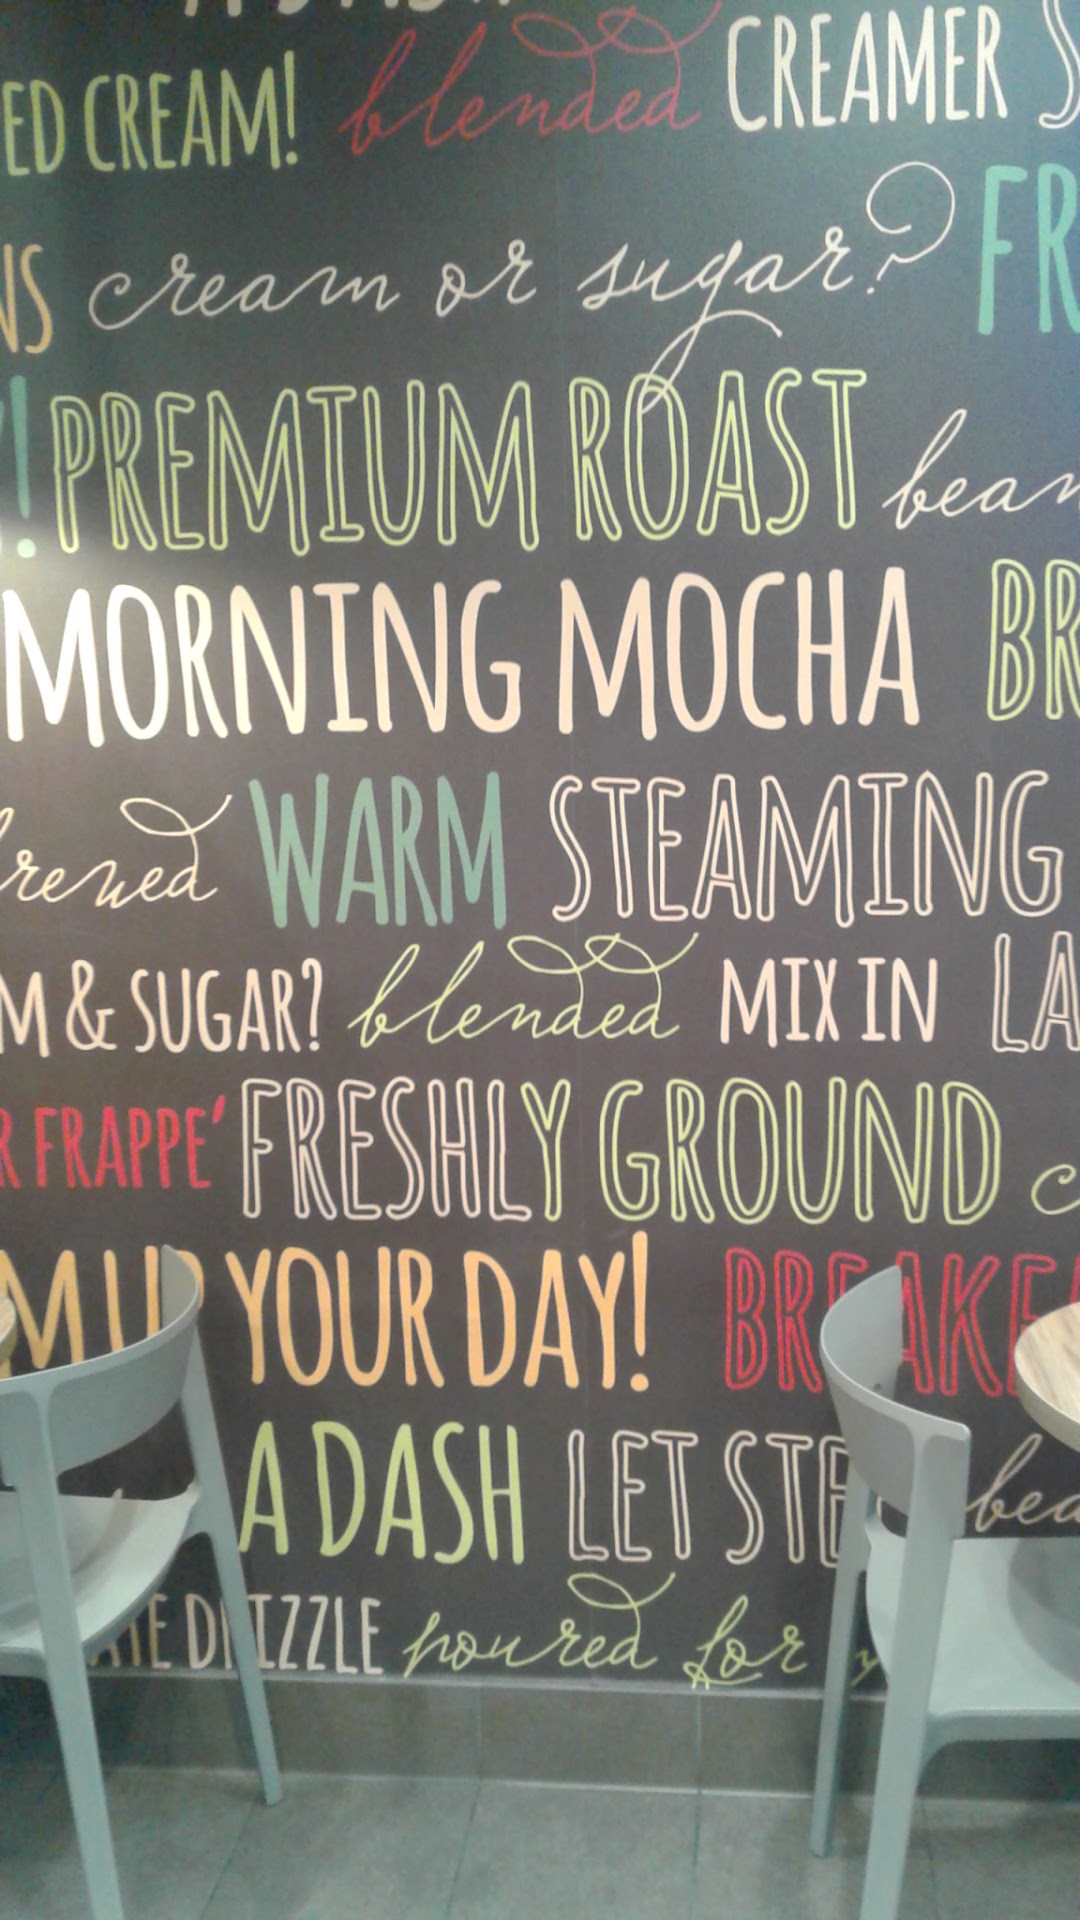 A DASH
ED CREAM! blended CREAMER S
NS cream or sugar? FR
Y! PREMIUM ROAST bean
MORNING MOCHA BR
brewed WARM STEAMING
M & SUGAR? blended MIX IN LA
R FRAPPE' FRESHLY GROUND c
M UP YOUR DAY! BREAKFA
A DASH LET STE bea
ATE DRIZZLE poured for y